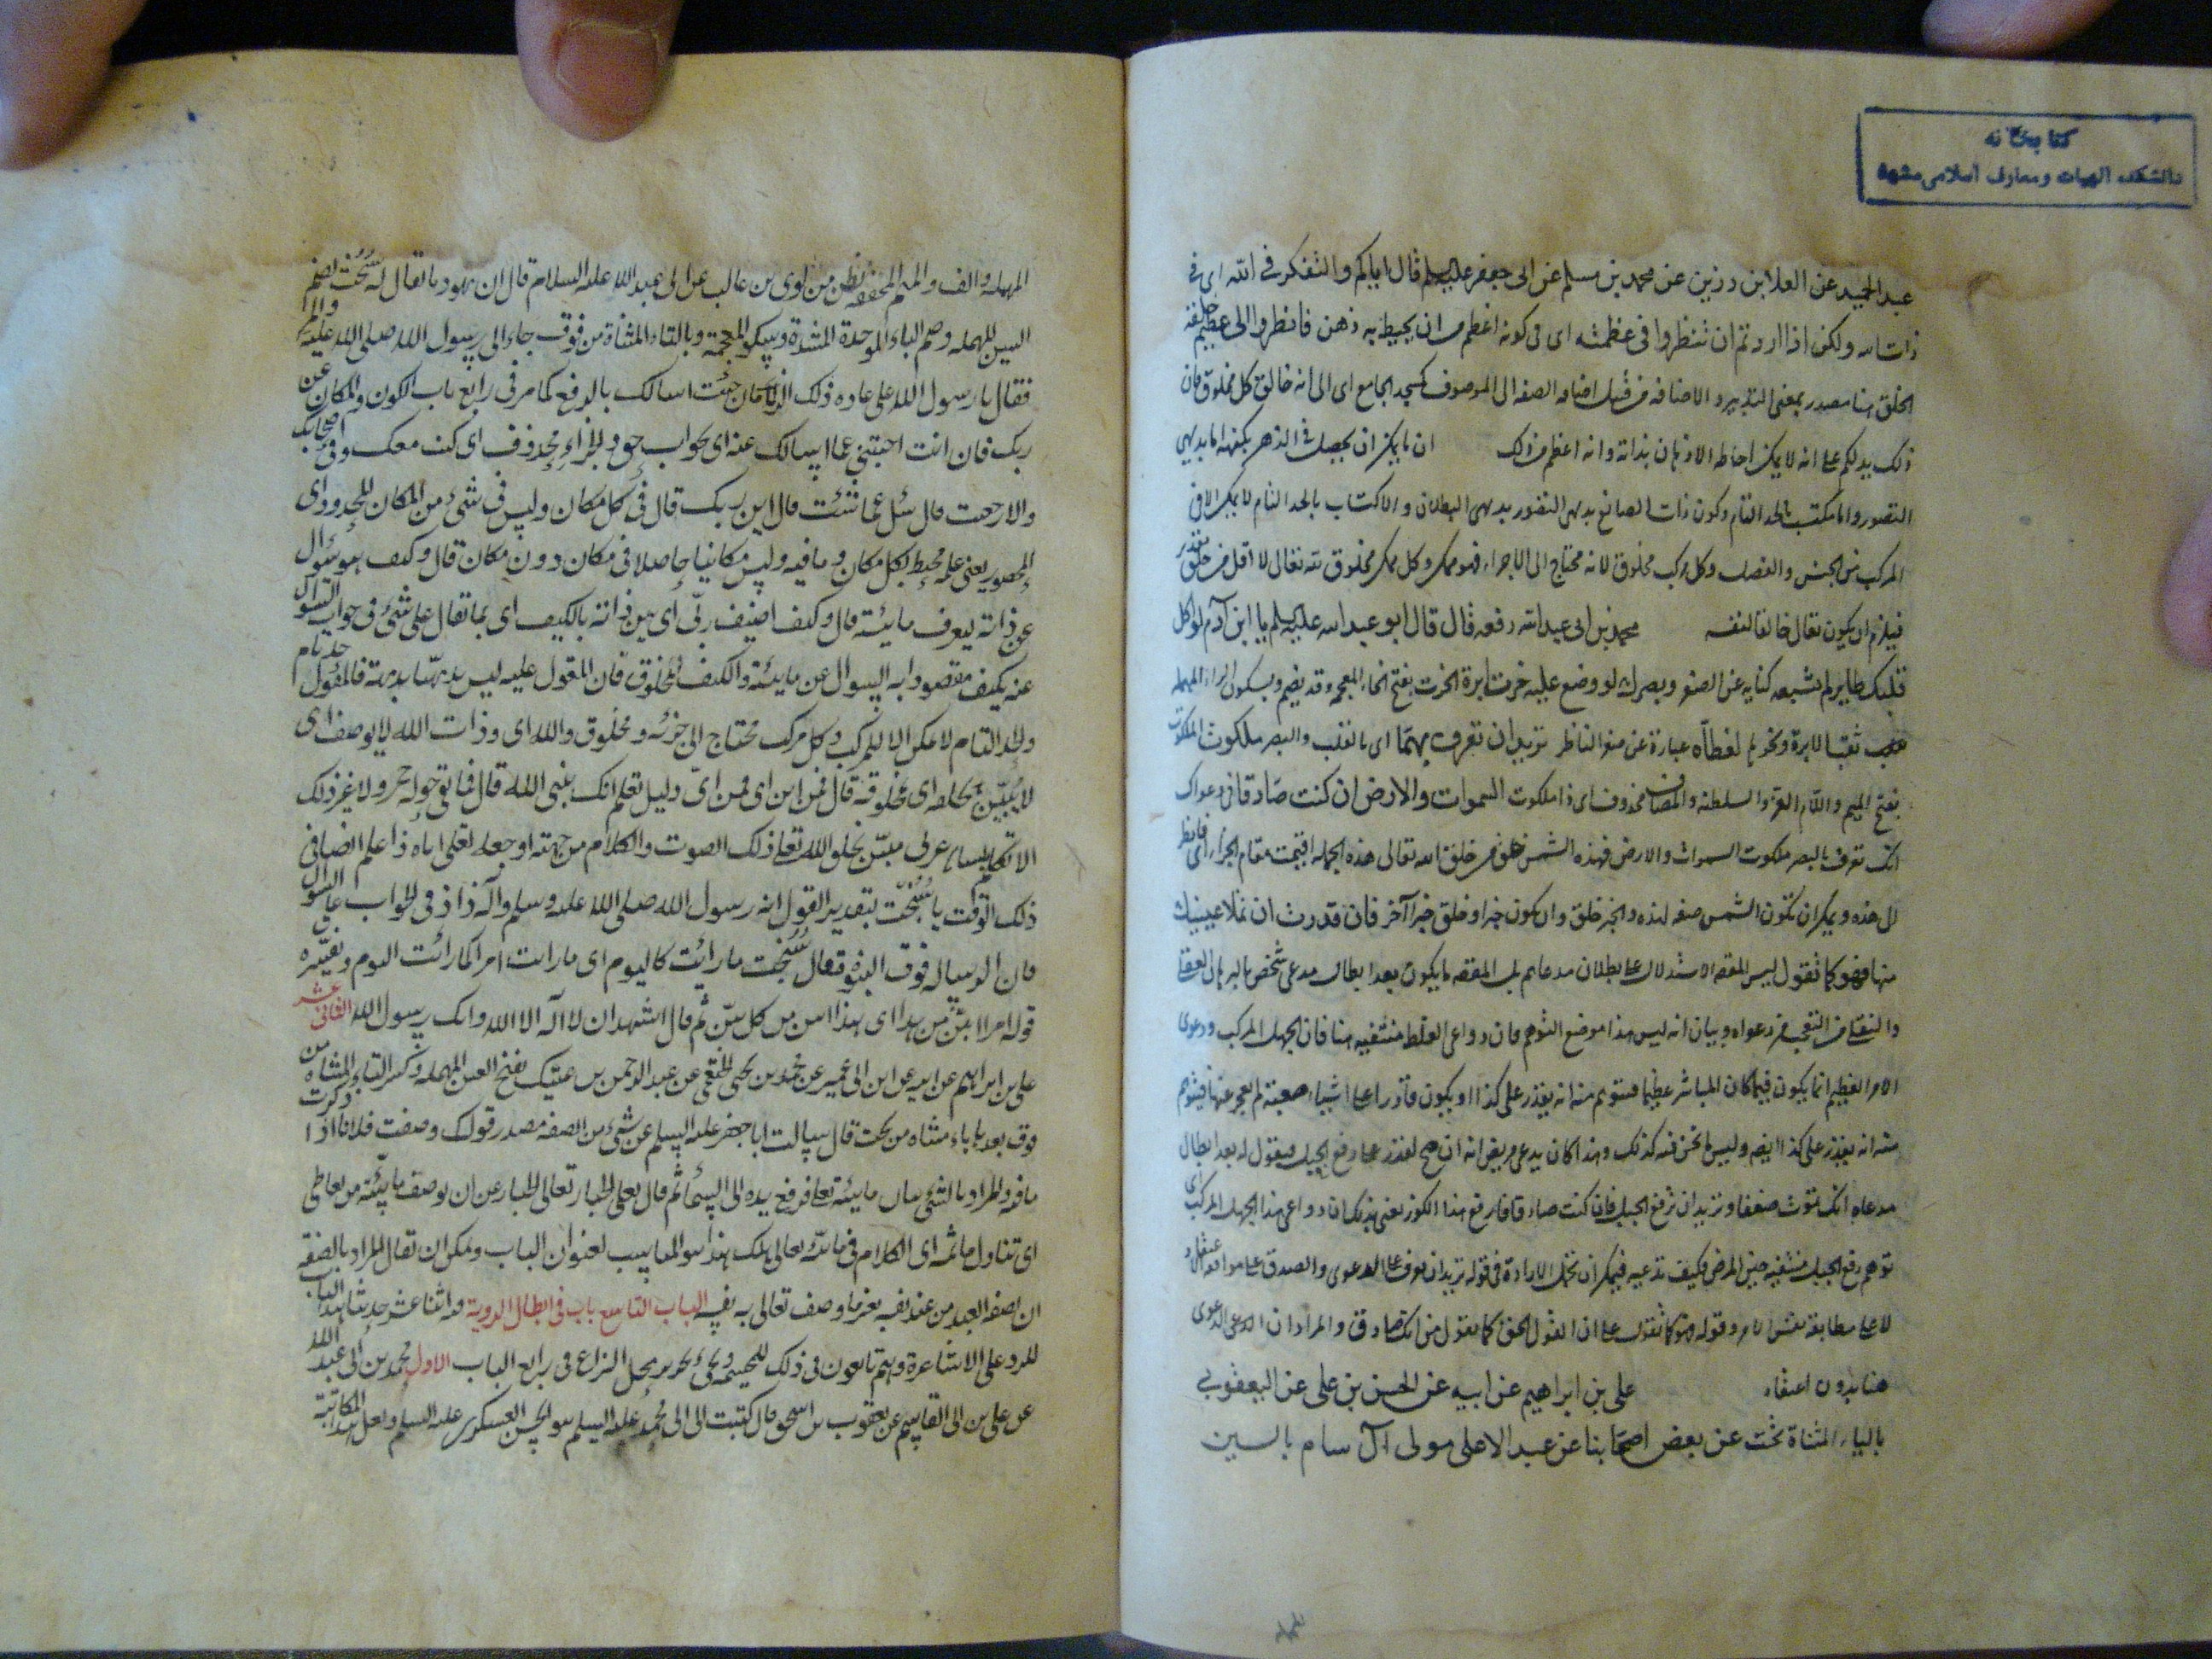 كتابخانه
دانشكده الهيات ومعارف اسلامى مشهد
عبد الحميد عن العلا بن رزين عن محمد بن مسلم عن ابى جعفر عليه السلم قال اياكم والتفكر فى الله اى فى
ذات الله ولكن اذا اردتم ان تنظروا فى عظمته اى فى كونه اعظم من ان يحيط به ذهن فانظروا الى عظيم خلقه
الخلق هنا مصدر بمعنى التدبير والاضافه من قبيل اضافه الصفه الى الموصوف كمسجد الجامع اى الى انه خالق كل مخلوق فان
ذلك يدلكم على انه لا يمكن احاطه الاذهان بذاته وانه اعظم من ذلك ان ما يمكن ان يحصل فى الذهن بكنهه اما بديهى
التصور واما مكتسب بالحد التام وكون ذات الصانع بديهى التصور بديهى البطلان والاكتساب بالحد التام لا يمكن الا فى
المركب من الجنس والفصل وكل مركب مخلوق لانه محتاج الى الاجزاء فهو ممكن وكل ممكن مخلوق لله تعالى لا اقل من خلق تقدير
فيلزم ان يكون تعالى خالقا لنفسه محمد بن ابى عبد الله رفعه قال قال ابو عبد الله عليه السلم يا ابن آدم لو اكل
قلبك طاير لم يشبعه كنايه عن الصغر وبصرك لو وضع عليه خرت ابرة الخرت بفتح الخاء المعجمه وقد يضم وبسكون الراء المهمله
ثقب الابرة ونحو لها لغطاه عبارة عن صغر الناظر تريد ان تعرف بهما اى بالقلب والبصر ملكوت الملكوت
بفتح الميم واللام العز والسلطنه والمضاف محذوف اى ذا ملكوت السموات والارض ان كنت صادقا فى دعواك
انك تعرف بالبصر ملكوت السموات والارض فهذه الشمس خلق من خلق الله تعالى هذه الجمله اقيمت مقام الجزاء اى فانظر
الى هذه ويمكن ان تكون الشمس صفه لهذه والخبر خلق وان يكون خبرا وخلق خبرا آخر فان قدرت ان تملا عينيك
منها فهو كما تقول ليس المقصد الاستدلال على بطلان مدعاهم بل المقصد ما يكون بعد ابطال مدعى شخص بالبرهان العقلى
والنقلى من التعجب من دعواه وبيان انه ليس هذا موضع التوهم فان دواعى الغلط منتفيه هنا فان الجهل المركب ودعوى
الامر العظيم انما يكون فيما كان المباشر عظيما فيتوهم منه انه يقدر على كذا او يكون قادرا على اشياء صعبة لم يعجز عنها فيتوهم
منه انه يقدر على كذا ايضا وليس ما نحن فيه كذلك وهذا كان يدعى مريض انه ان صح لقدر على رفع الجبل فيقول له بعد ابطال
مدعاه انك تموت ضعفا وتريد ان ترفع الجبل فان كنت صادقا فارفع هذا الكوز يعنى بذلك ان دواعى هذا الجهل المركب اى
توهم رفع الجبل منتفيه حين المرض فكيف تدعيه فيمكن ان تحمل الارادة فى قوله تريد ان تعرف على الدعوى والصدق على موافقه الاعتقاد
لا على مطابقة نفس الامر وقوله فهو كما تقول على ان القول الحق كما تقول من انك صادق والمراد ان الدعوى
هنا بدون اعتقاد على بن ابراهيم عن ابيه عن الحسن بن على عن اليعقوبى
بالياء المثناة تحت عن بعض اصحابنا عن عبد الاعلى مولى آل سام بالسين
المهملة والف والميم المخففه بطن من لوى بن غالب عن ابى عبد الله عليه السلام قال ان يهوديا يقال له سُبُّخت بضم
السين المهمله وضم الباء الموحدة المشددة وسكون المعجمة وبالتاء المثناة من فوق جاء الى رسول الله صلى الله عليه وآله
فقال يا رسول الله على عاده ذلك الزمان جئت اسالك بالرفع كما مر فى رابع باب الكون والمكان عن
ربك فان انت اجبتنى عما اسالك عنه اى بجواب حق والجزاء محذوف اى كنت معك وفى اصحابك
والا رجعت قال سل عما شئت قال اين ربك قال فى كل مكان وليس فى شئ من المكان المحدود اى
المحصور يعنى علمه محيط بكل مكان وما فيه وليس مكانيا حاصلا فى مكان دون مكان قال وكيف هو سؤال
عن ذاته ليعرف مائيته قال وكيف اصف ربى اى ابين ذاته بالكيف اى بما يقال على شئ فى جواب السؤال
عنه بكيف مقصودا به السوال عن مائيته والكيف مخلوق فان المقول عليه ليس بديهيا بديهة فالمقول حد تام
والحد التام لا يمكن الا للمركب وكل مركب محتاج الى جزئه ومخلوق والله اى وذات الله لا يوصف اى
لا يبين بخلقه اى مخلوقه قال فمن اين اى فمن اى دليل تعلم انك نبى الله قال فما بقى حوله حجر ولا غير ذلك
الا تكلم بلسان عربى مبين بخلق الله تعالى ذلك الصوت والكلام من جهته او جعله تعالى اياه ذا علم ايضا فى
ذلك الوقت يا سُبُّخت بتقدير القول انه رسول الله صلى الله عليه وسلم وآله زاد فى الجواب على السوال
فان الرساله فوق النبوة فقال سُبُّخت ما رايت كاليوم اى ما رايت امرا كما رائت اليوم وتفسيره
قوله امرا ابين من هذا اى هذا ابين من كل بين ثم قال اشهد ان لا اله الا الله وانك رسول الله الثانى عشر
على بن ابراهيم عن ابيه عن ابن ابى عمير عن محمد بن يحيى الخثعمى عن عبد الرحمن بن عتيك بفتح العين المهمله وكسر التاء المثناه من
فوق بعدها ياء مثناه من تحت قال سالت ابا جعفر عليه السلم عن شئ من الصفه مصدر قولك وصفت فلانا اذا ذكرت
ما فيه والمراد بالشئ بيان مائيته تعالى فرفع يده الى السماء ثم قال تعالى الجبار تعالى الجبار عن ان يوصف مائيته من تعاطى
اى تناول ما ثمه اى الكلام فى مائيته تعالى هلك هذا هو المناسب لعنوان الباب ويمكن ان يقال المراد بالصفه
ان يصفه العبد من عند نفسه بغير ما وصف تعالى به نفسه الباب التاسع باب فى ابطال الروية فيه اثنا عشر حديثا هذا الباب
للرد على الاشاعرة وهم تابعون فى ذلك للمجسمه ويجئ تحرير محل النزاع فى رابع الباب الاول محمد بن ابى عبد الله
عن على بن ابى القاسم عن يعقوب بن اسحق قال كتبت الى ابى محمد عليه السلم هو الحسن العسكرى عليه السلم ولعل هذا المكاتبة